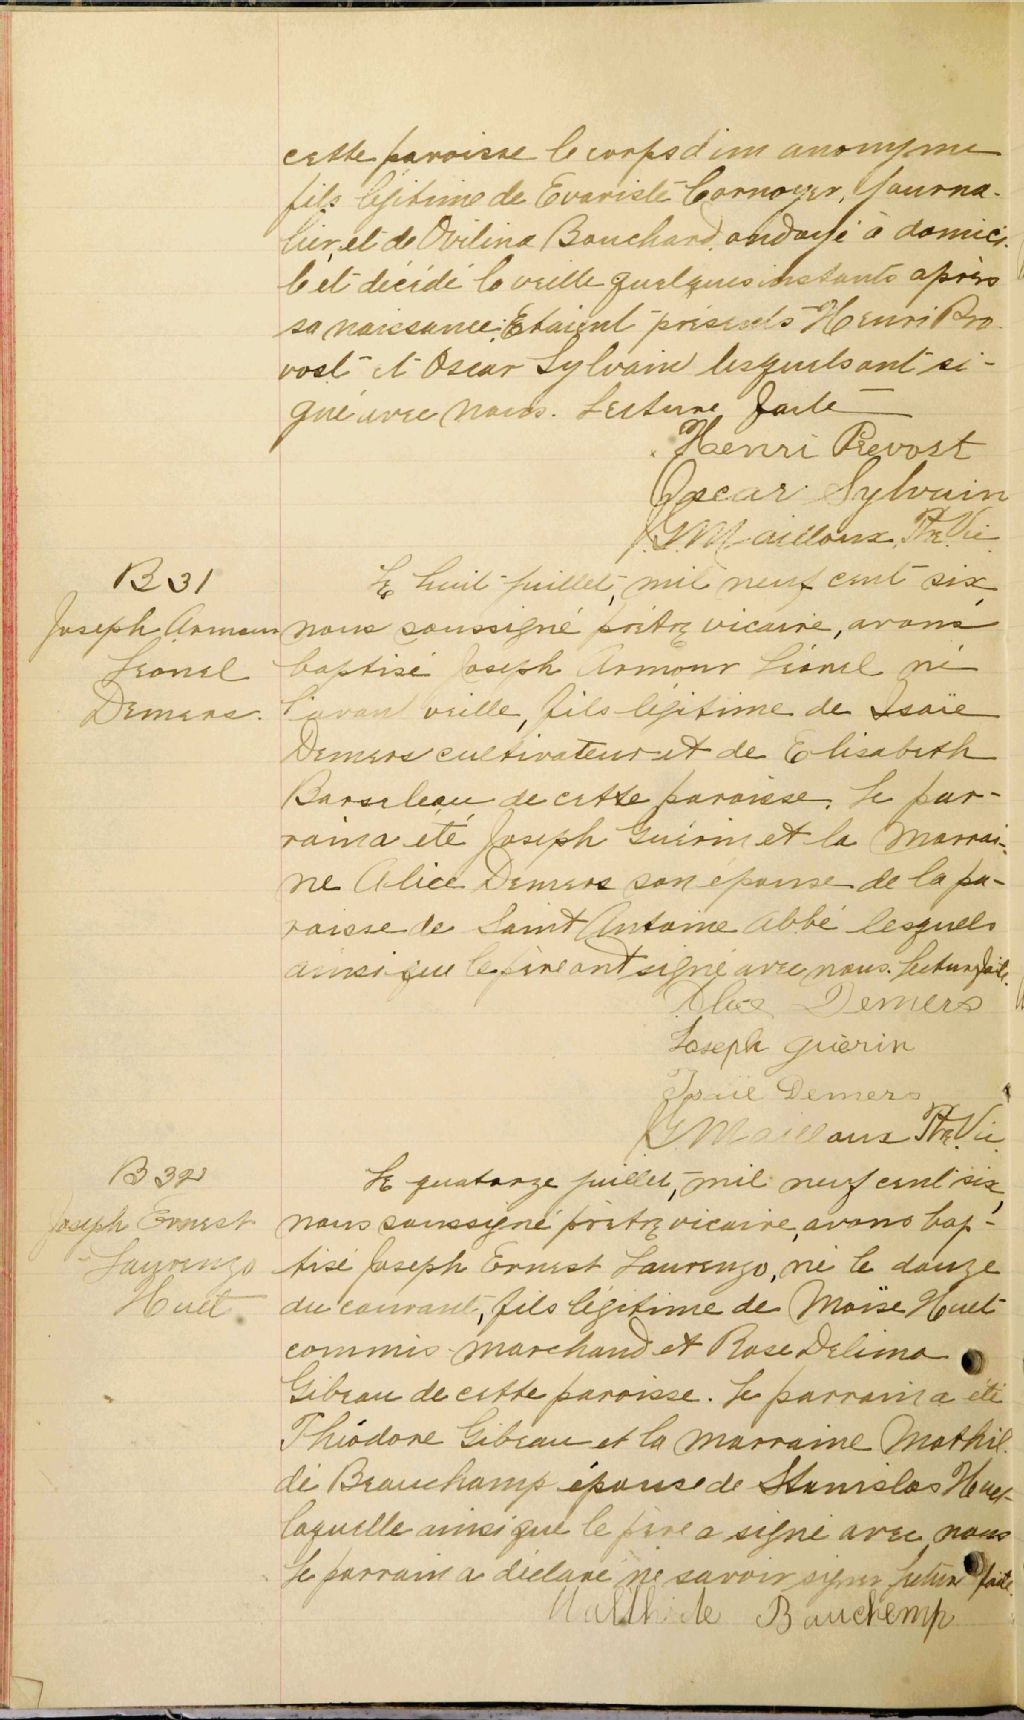 cette paroisse le corps d'un anonyme
fils légitime de Evariste Cornoyer, journa-
lier, et de Ovilina Bouchard, ondoyé à domici-
le et décédé la veille quelques instants après
sa naissance. Etaient présents Henri Pro
vost et Oscar Sylvain lesquels ont si-
gné avec nous. Lecture faite
Henri Prevost
Oscar Sylvain
J.G. Mailloux Ptre Vic
B 31
Joseph Armour
Leonel
Demers.
Le huit juillet, mil neuf cent six,
nous soussigné prêtre vicaire, avons
baptisé Joseph Armour Léonel né
l'avant veille, fils légitime de Isaïe
Demers cultivateur et de Elisabeth
Barseleau de cette paroisse. Le par-
rain a été Joseph Guérin et la Marrai-
ne Alice Demers son épouse de la pa-
roisse de Saint Antoine Abbé lesquels
ainsi que le père ont signé avec nous. Lecture faite.
Alice Demers
Joseph Guérin
Isaïe Demers
J.G. Mailloux Ptre Vic
B 32
Joseph Ernest
Laurenzo
Huet
Le quatorze juillet, mil neuf cent six,
nous soussigné prêtre vicaire, avons bap-
tisé Joseph Ernest Laurenzo, né le douze
du courant, fils légitime de Moïse Huet
commis-marchand et Rose Delima
Gibeau de cette paroisse. Le parrain a été
Théodore Gibeau et la marraine Mathil-
de Beauchamp épouse de Stanislas Huet
laquelle ainsi que le père a signé avec nous
Le parrain a déclaré ne savoir signer. Lecture faite.
Mathilde Bauchemp